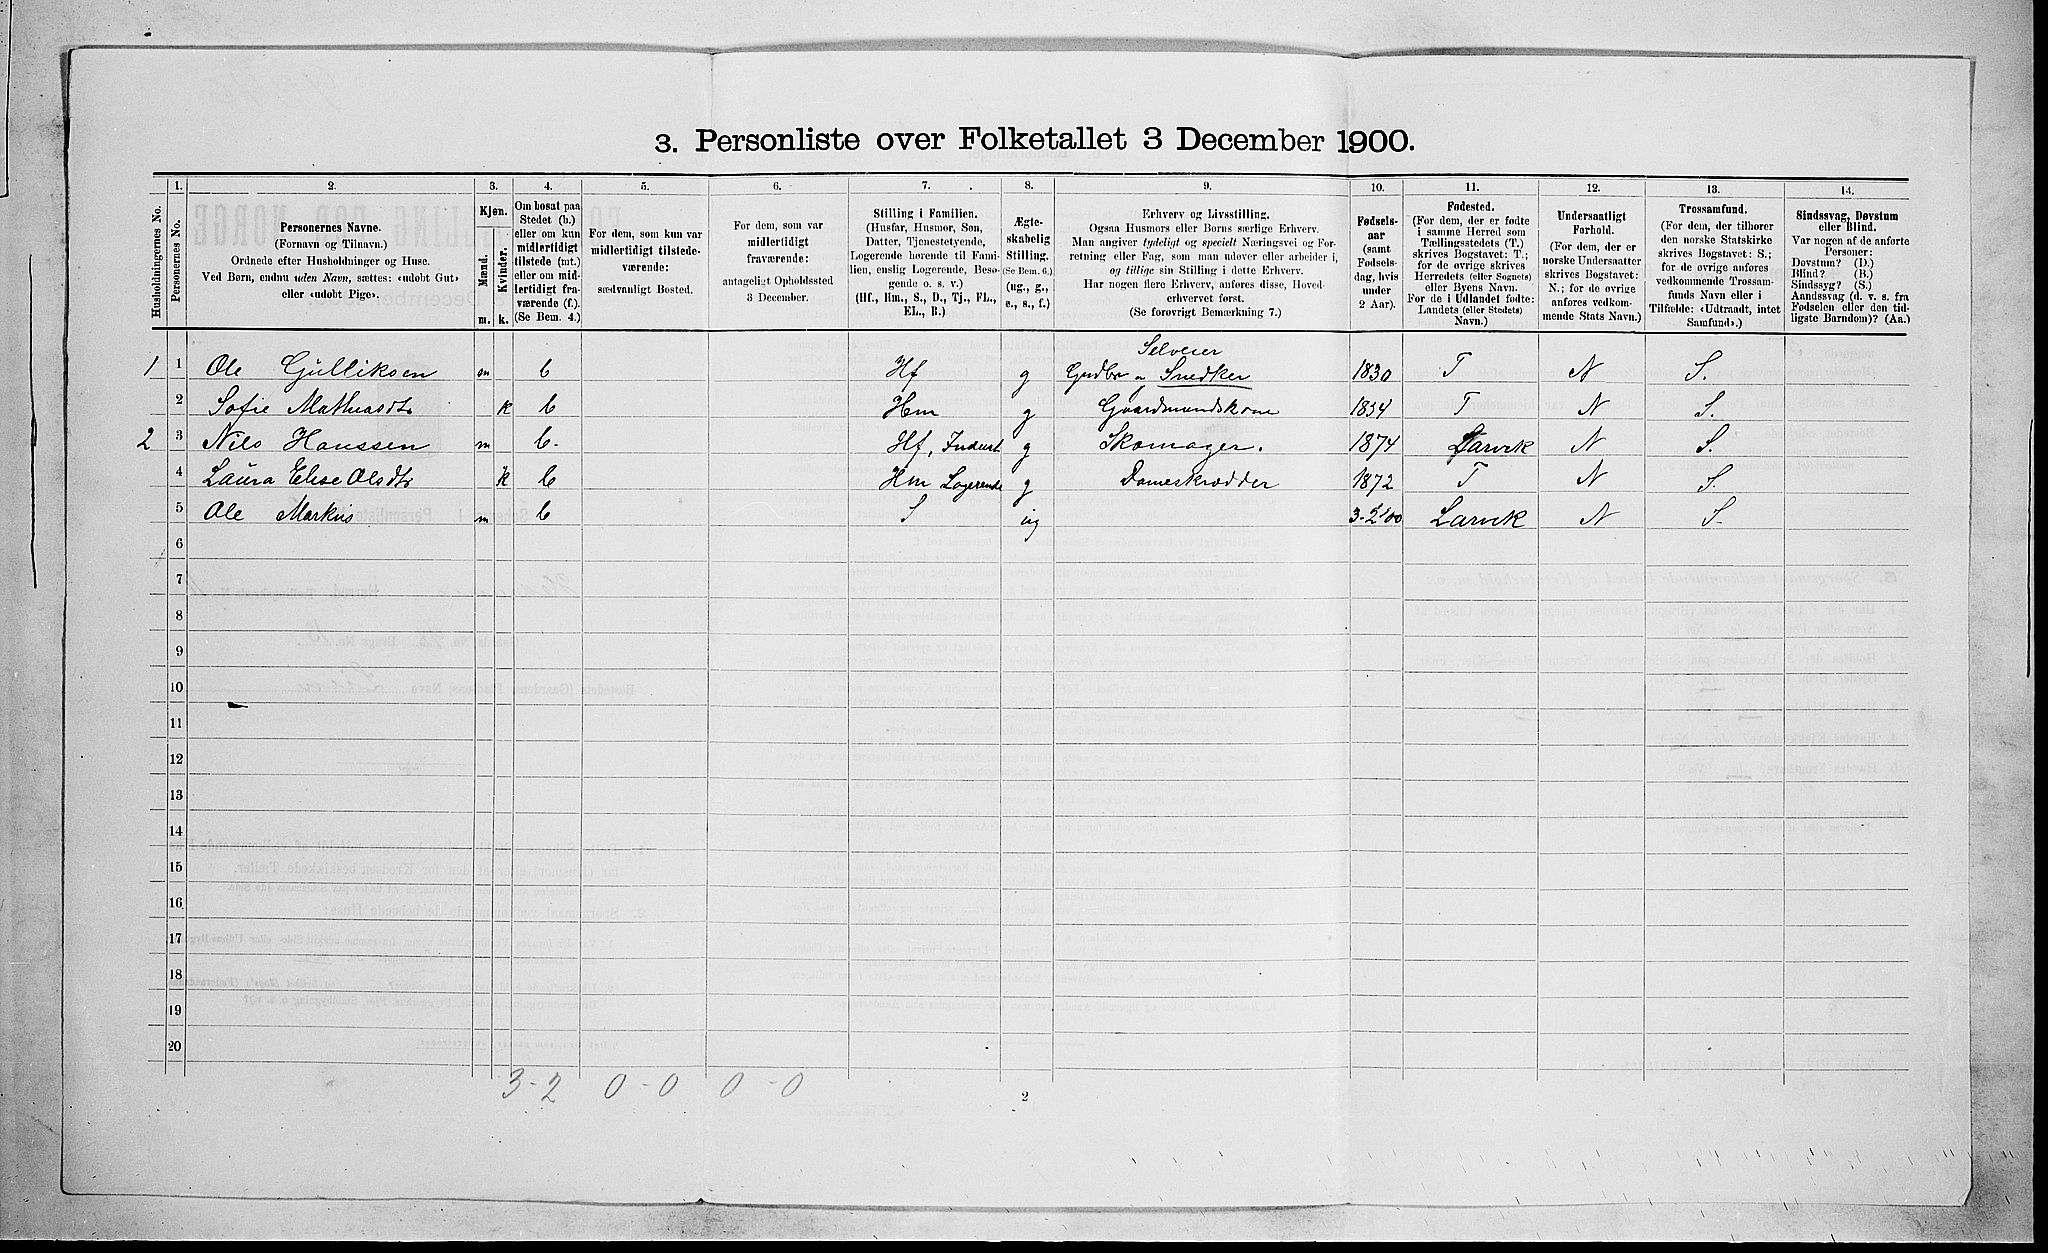 3. Personliste over Folketallet 3 December 1900.
1. 2. 3. 4. 5. 6. 7. 8. 9. 10. 11. 12. 13. 14.
Husholdningernes No.
Personernes No.
Personernes Navne.
(Fornavn og Tilnavn.)
Ordnede efter Husholdninger og Huse.
Ved Børn, endnu uden Navn, sættes: «udobt Gut»
eller «udobt Pige».
Kjøn.
Mænd.
Kvinder.
m. k.
Om bosat paa
Stedet (b.)
eller om kun
midlertidigt
tilstede (mt.)
eller om mid-
lertidigt fra-
værende (f.).
(Se Bem. 4.)
For dem, som kun var
midlertidigt tilstede-
værende:
sædvanligt Bosted.
For dem, som var
midlertidigt
fraværende:
antageligt Opholdssted
3 December.
Stilling i Familien.
(Husfar, Husmor, Søn,
Datter, Tjenestetyende,
Logerende hørende til Fami-
lien, enslig Logerende, Beso-
gende o. s. v.)
(Hf., Hm., S., D., Tj., FL.,
EL., B.)
Ægte-
skabelig
Stilling.
(Se Bem. 6.)
(ug., g.,
e., s., f.)
Erhverv og Livsstilling.
Ogsaa Husmors eller Børns særlige Erhverv.
Man angiver tydeligt og specielt Næringsvei og For-
retning eller Fag, som man udøver eller arbeider i,
og tillige sin Stilling i dette Erhverv.
Har nogen flere Erhverv, anføres disse, Hoved-
erhvervet først.
(Se forøvrigt Bemærkning 7.)
Fødsels-
aar
(samt
Fødsels-
dag, hvis
under
2 Aar).
Fødested.
(For dem, der er fødte
i samme Herred som
Tællingsstedets (T.)
skrives Bogstavet: T.;
for de øvrige skrives
Herredets (eller Sognets)
eller Byens Navn.
For de i Udlandet fødte:
Landets (eller Stedets)
Navn.)
Undersaatligt
Forhold.
(For dem, der er
norske Undersaatter
skrives Bogstavet:
N.; for de øvrige
anføres vedkom-
mende Stats Navn.)
Trossamfund.
(For dem, der tilhører
den norske Statskirke
skrives Bogstavet: S.;
for de øvrige anføres
vedkommende Trossam-
funds Navn eller i
Tilfælde: «Udtraadt, intet
Samfund».)
Sindssvag, Døvstum
eller Blind.
Var nogen af de anførte
Personer:
Døvstum? (D.)
Blind? (B.)
Sindssyg? (S.)
Aandssvag (d. v. s. fra
Fødselen eller den tid-
ligste Barndom)? (Aa.)
1 1 Ole Gulliksen m b Hf g Selveier Grdbr o Snedker 1830 T N S.
2 Sofie Mathiasdtr k b Hm g Gaardmandskone 1834 T N S.
2 3 Nils Hanssen m b. Hf, Inderst g Skomager. 1874 Larvik N S.
4 Laura Elise Olsdtr k b Hm Logerende g Dameskrædder 1872 T N S.
5 Ole Markus m b S ug 3-2 00 Larvik N S.
6
7
8
9
10
11
12
13
14
15
16
17
18
19
20
3-2 0-0 0-0
2